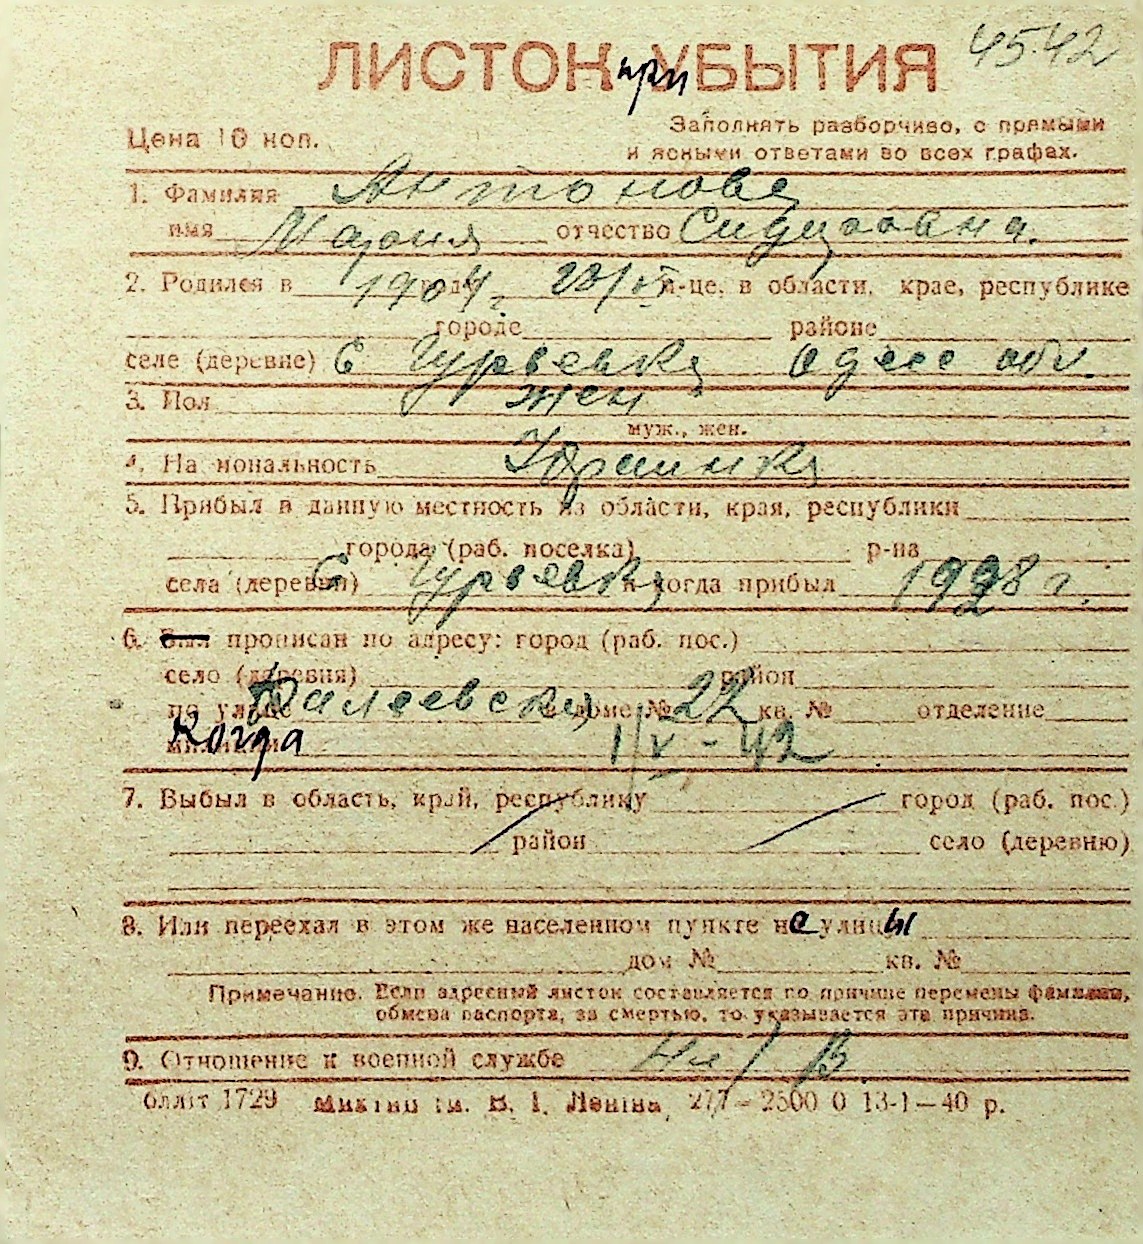 4542
ЛИСТОК при УБЫТИЯ
Цена 10 коп.
Заполнять разборчиво, с прямыми
и ясными ответами во всех графах.
1. Фамилия Антонова
имя Мария отчество Сидоровна.
2. Родился в 1904 г. м-це, в области, крае, республике
городе районе
селе (деревне) с Гурьевка Одесс обл.
3. Пол жен
муж., жен.
4. Национальность Украинка
5. Прибыл в данную местность из области, края, республики
города (раб. поселка) р-на
села (деревни) с Гурьевка и когда прибыл 1928 г.
6. Был прописан по адресу: город (раб. пос.)
село (деревня) район
по улице в доме № 22 кв. № отделение
милиции Когда 1/V-42
7. Выбыл в область, край, республику город (раб. пос.)
район село (деревню)
8. Или переехал в этом же населенном пункте не улицы
дом № кв. №
Примечание. Если адресный листок составляется по причине перемены фамилии,
обмена паспорта, за смертью, то указывается эта причина.
9. Отношение к военной службе Н/В
Облліт 1729 ім. В. І. Леніна, 277—2500 0 13-1—40 р.